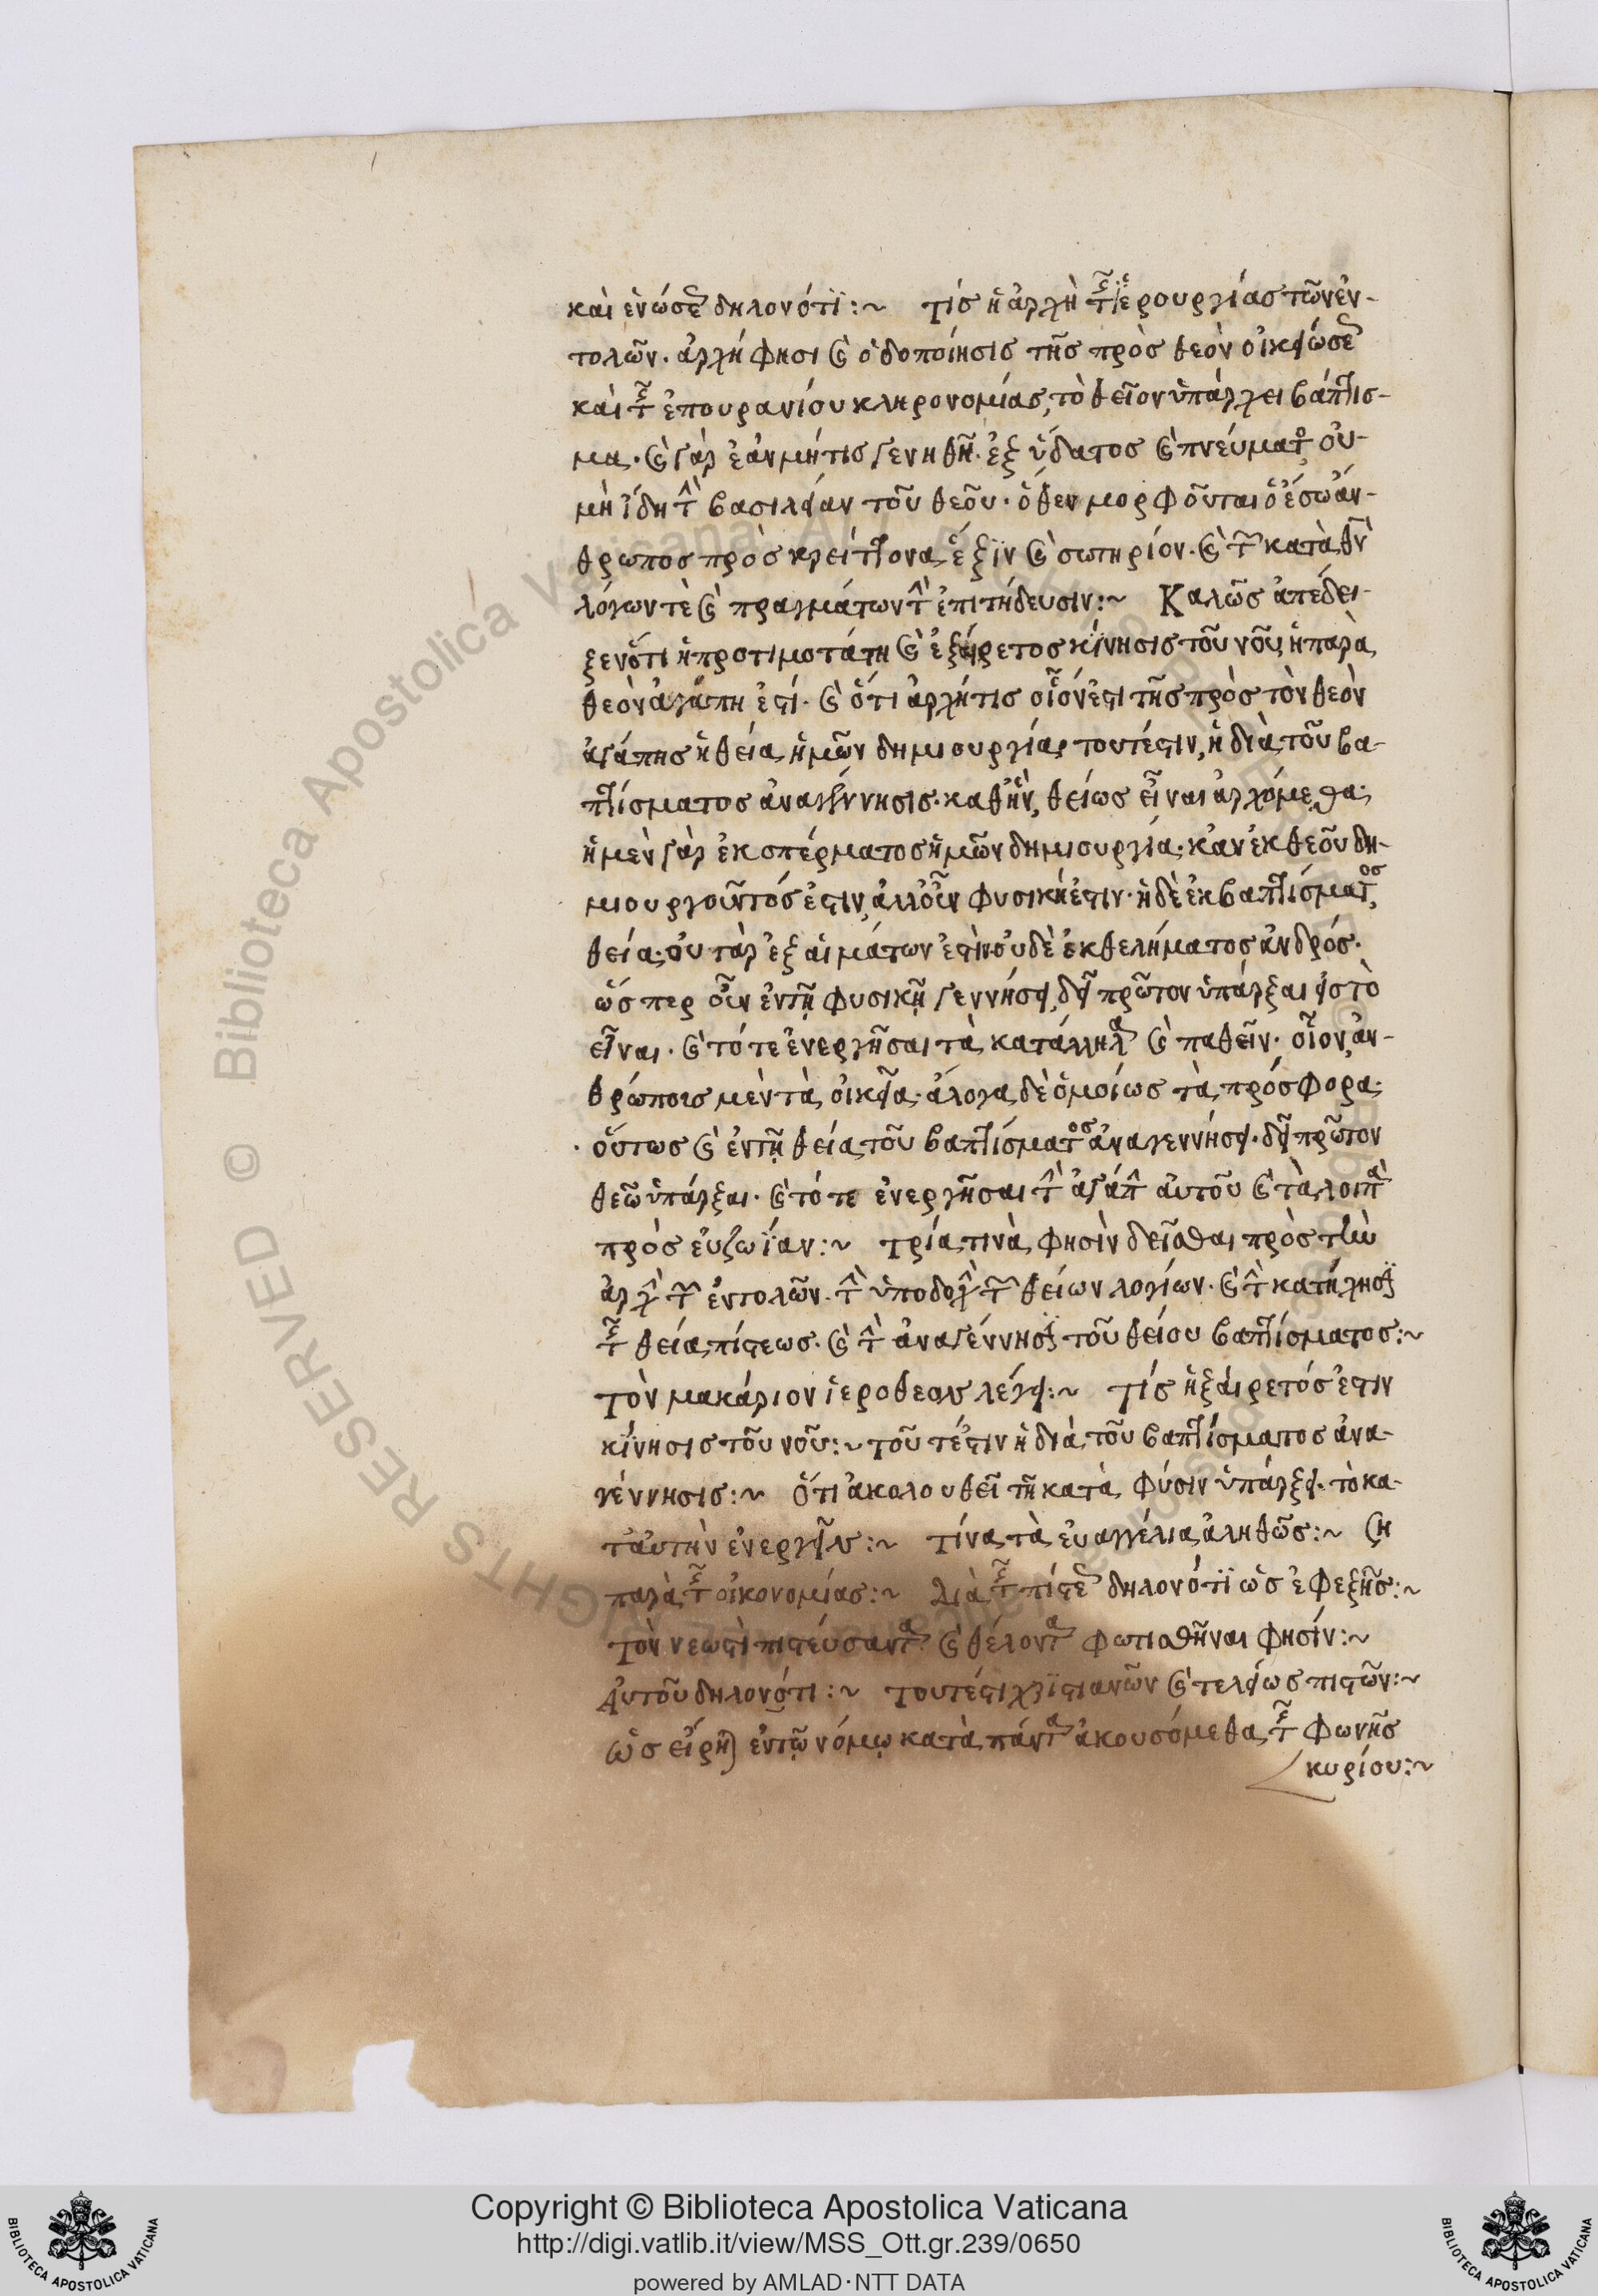 καὶ ἑνώσεως δηλονότι:~ τίς ἡ ἀρχὴ τῆς ἱερουργίας τῶν ἐν-
τολῶν. ἀρχή φησι καὶ ὁδοποίησις τῆς πρὸς θεὸν οἰκειώσεως
καὶ τῆς ἐπουρανίου κληρονομίας, τὸ θεῖον ὑπάρχει βάπτισ-
μα. καὶ γὰρ ἐὰν μή τις γεννηθῆ ἐξ ὕδατος καὶ πνεύματος οὐ
μὴ ἴδη τὴν βασιλείαν τοῦ θεοῦ. ὅθεν μορφοῦται ὁ ἔσω ἄν-
θρωπος πρὸς κρείττονα ἕξιν καὶ σωτηρίον. καὶ τῶν κατὰ θν
λόγων τὲ καὶ πραγμάτων τὴν ἐπιτήδευσιν:~ Καλῶς ἀπέδει-
ξεν ὅτι ἡ προτιμοτάτη καὶ ἐξαίρετος κίνησις τοῦ νοῦ, ἡ παρὰ
θεὸν ἀγάπη ἐστί. καὶ ὅτι ἀρχή τις οἷόν ἐστι τῆς πρὸς τὸν θεὸν
ἀγάπης ἡ θεία ἡμῶν δημιουργία, τουτέστιν, ἡ διὰ τοῦ βα-
πτίσματος ἀναγέννησις. καθ' ἣν, θείως εἶναι ἀρχόμεθα·
ἡ μὲν γὰρ ἐκ σπέρματος ἡμῶν δημιουργία. κἂν ἐκ θεοῦ δη-
μιουργοῦντός ἐστιν, ἀλλ' οὖν φυσική ἐστιν. ἡ δὲ ἐκ βαπτίσματος,
θεία· οὐ τὰρ ἐξ αἱμάτων ἐστὶν οὐδὲ ἐκ θελήματος ἀνδρός.
ὥσπερ οὖν ἐν τῇ φυσικῇ γεννήσει, δεῖ πρῶτον ὑπάρξαι εἰς τὸ
εἶναι. καὶ τότε ἐνεργῆσαι τὰ κατάλληλα καὶ παθεῖν. οἷον, ἀν-
θρώποις μὲν τὰ οἰκεῖα. ἄλογα δὲ ὁμοίως τὰ πρόσφορα·
οὕτως καὶ ἐν τῇ θεία τοῦ βαπτίσματος ἀναγεννήσει. δεῖ πρῶτον
θεῶ ὑπάρξαι. καὶ τότε ἐνεργῆσαι τὴν ἀγάπην αὐτοῦ καὶ τὰ λοιπὰ
πρὸς εὐζωΐαν:~ τρία τινὰ φησὶν δεῖσθαι πρὸς τὴν
ἀρχὴν τῶν ἐντολῶν. τὴν ὑποδοχὴν τῶν θείων λογίων. καὶ τὴν κατήχησιν
τῆς θεία πίστεως. καὶ τὴν ἀναγέννησιν τοῦ θείου βαπτίσματος:~
τὸν μακάριον ἱερόθεον λέγει:~ τίς ἡ ξαίρετός ἐστιν
κίνησις τοῦ νοῦ:~ τοῦ τέστιν ἡ διὰ τοῦ βαπτίσματος ἀνα-
γέννησις:~ ὅτι ἀκολουθεῖ τῆ κατὰ φύσιν ὑπάρξει. τὸ κα-
τ' αὐτὴν ἐνεργεῖν:~ τίνα τὰ εὐαγγέλια ἀληθῶς:~ ζη
παρὰ τῆς οἰκονομίας:~ διὰ τῆς πίστεως δηλονότι ὡς ἐφεξῆς:~
τὸν νεωστὶ πιστεύσαντα καὶ θέλοντα φωτισθῆναι φησίν:~
Αὐτοῦ δηλονότι:~ τουτέστι χριστιανῶν καὶ τελείως πιστῶν:~
ὡς εἴρηται ἐν τῷ νόμῳ κατὰ πάντα ἀκουσόμεθα τῆς φωνῆς
κυρίου:~
Copyright © Biblioteca Apostolica Vaticana
http://digi.vatlib.it/view/MSS_Ott.gr.239/0650
powered by AMLAD·NTT DATA